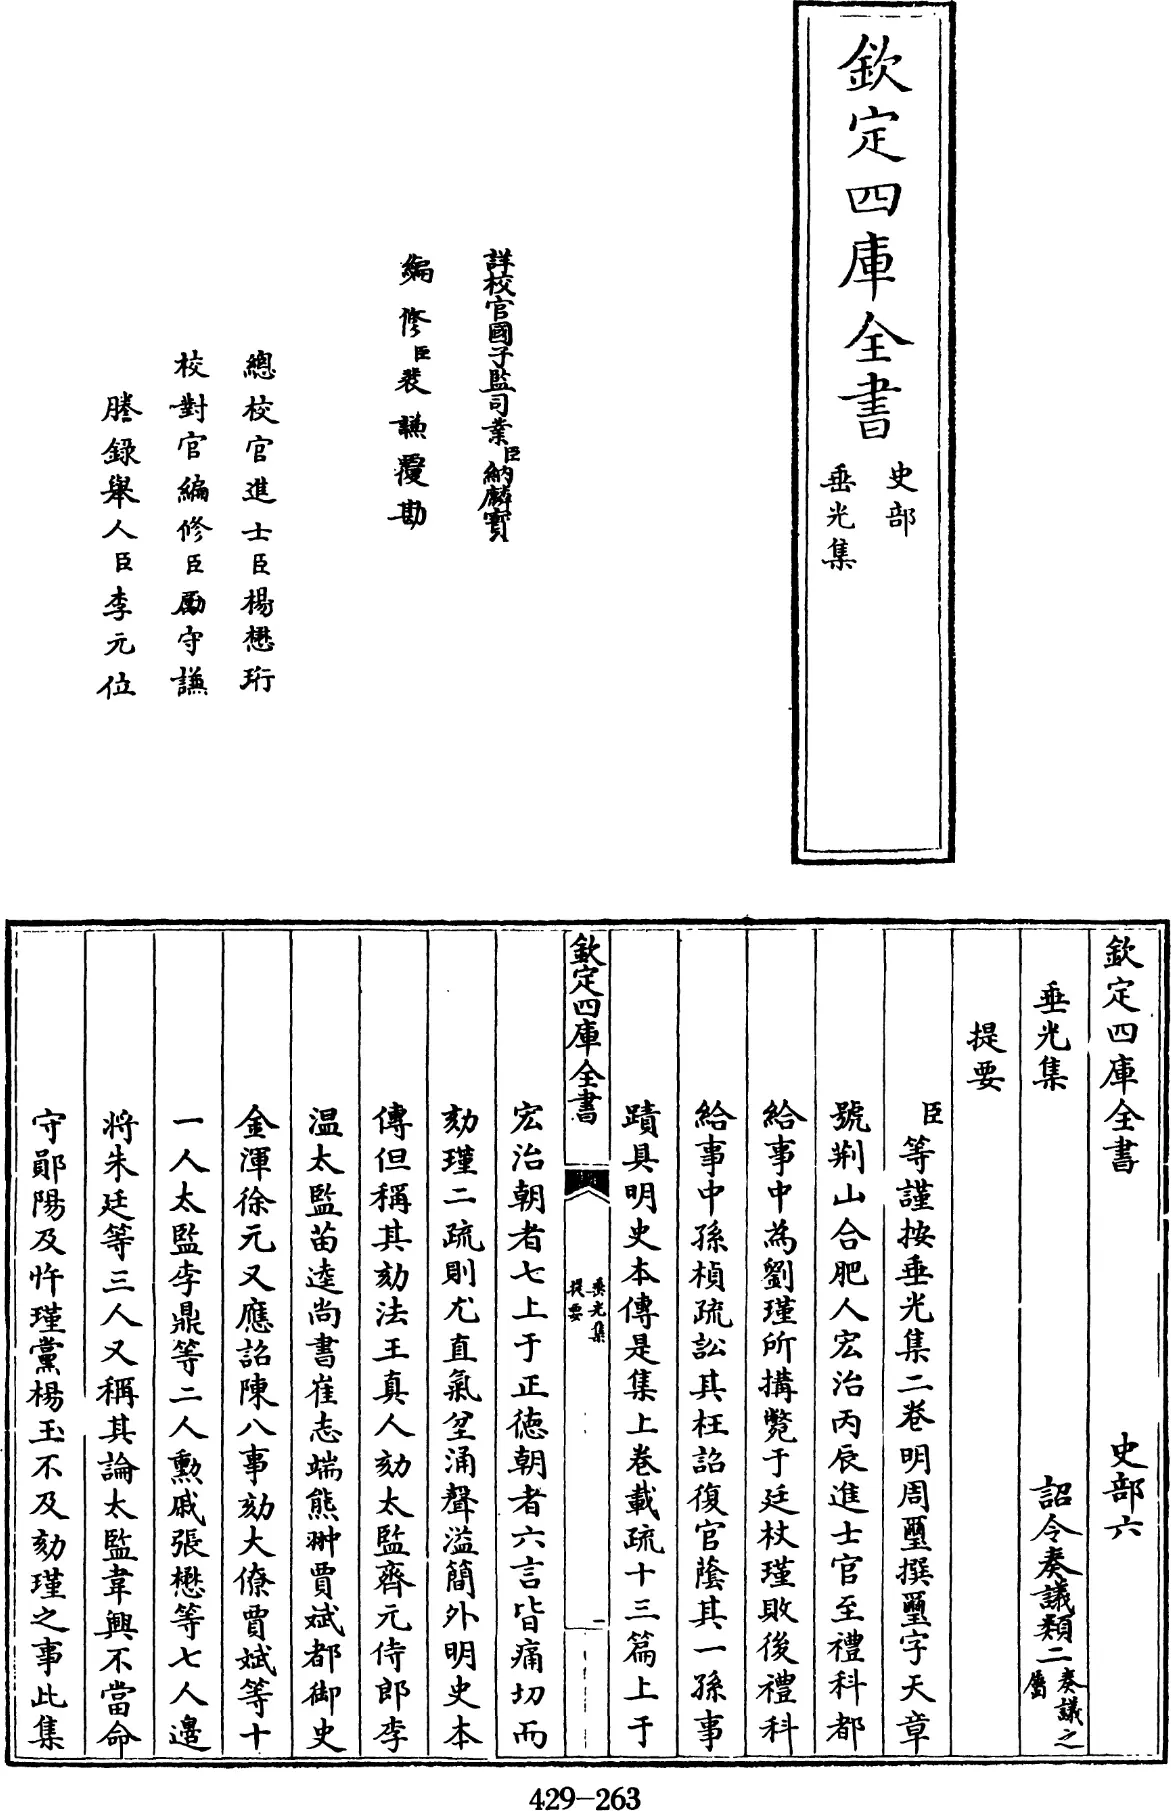 欽定四庫全書
史部
垂光集
詳校官國子監司業臣納麟寶
編修臣裴謙覆勘
總校官進士臣楊懋珩
校對官編修臣勵守謙
謄錄舉人臣李元位
欽定四庫全書 史部六
垂光集 詔令奏議類二奏議之屬
提要
臣等謹按垂光集二卷明周璽撰璽字天章
號荆山合肥人宏治丙辰進士官至禮科都
給事中為劉瑾所搆斃于廷杖瑾敗後禮科
給事中孫楨疏訟其枉詔復官蔭其一孫事
蹟具明史本傳是集上卷載疏十三篇上于
欽定四庫全書
垂光集
提要
一
宏治朝者七上于正徳朝者六言皆痛切而
劾瑾二疏則尤直氣坌涌聲溢簡外明史本
傳但稱其劾法王真人劾太監齊元侍郎李
温太監苗逵尚書崔志端熊翀賈斌都御史
金渾徐元又應詔陳八事劾大僚賈斌等十
一人太監李鼎等二人勲戚張懋等七人邊
將朱廷等三人又稱其論太監韋興不當命
守鄖陽及忤瑾黨楊玉不及劾瑾之事此集
429-263